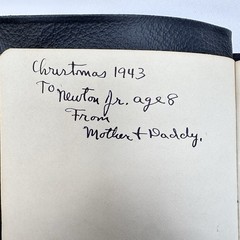 Christmas 1943
To Newton Jr. age 8
From
Mother + Daddy.